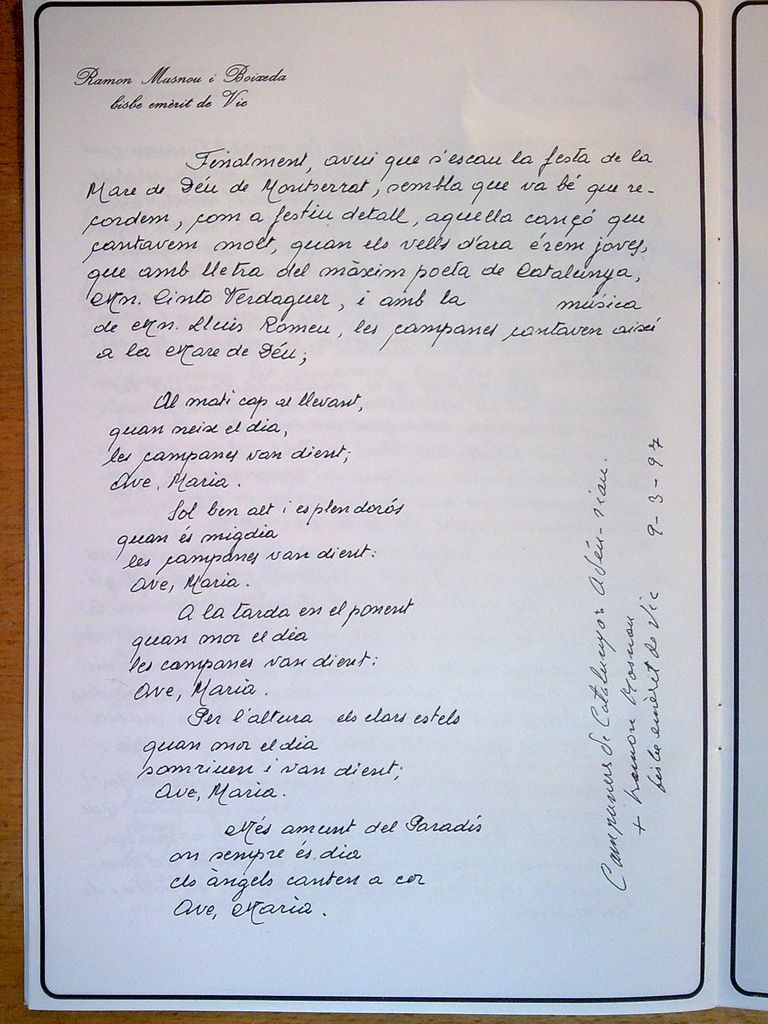 Ramon Masnou i Boixeda
bisbe emèrit de Vic
Finalment, avui que s'escau la festa de la
Mare de Déu de Montserrat, sembla que va bé que re-
cordem, com a festiu detall, aquella cançó que
cantavem molt, quan els vells d'ara érem joves,
que amb lletra del màxim poeta de Catalunya,
Mn. Cinto Verdaguer, i amb la música
de Mn. Lluis Romeu, les campanes cantaven així
a la Mare de Déu;
Al mati cap al llevant,
quan neix el dia,
les campanes van dient;
Ave, Maria.
Sol ben alt i esplendorós
quan és migdia
les campanes van dient:
Ave, Maria.
A la tarda en el ponent
quan mor el dia
les campanes van dient:
Ave, Maria.
Per l'altura els clars estels
quan mor el dia
somriuen i van dient;
Ave, Maria.
Més amunt del Paradís
on sempre és dia
els àngels canten a cor
Ave, Maria.
Campaners de Catalunya: Adéu-siau.
+ Ramon Masnou
bisbe emèrit de Vic 9-3-97